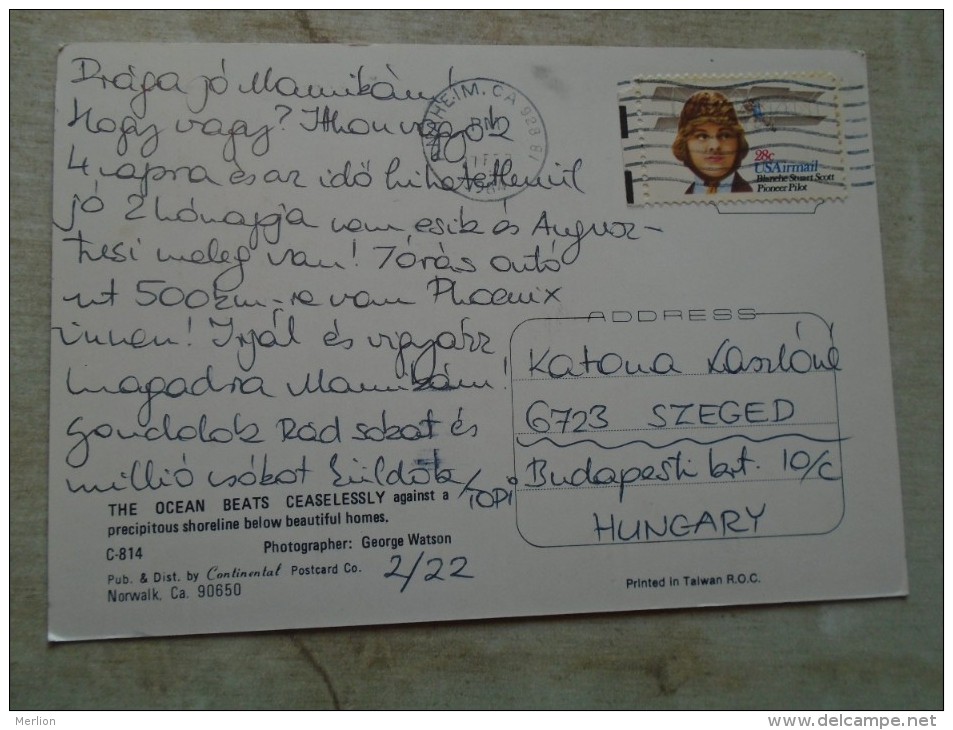 Drága jó Mamikám!
Hogy vagy? Itthon vagyok
4 napra és az idő hihetetlenül
jó 2 hónapja nem esik és Augusz-
tusi meleg van! 7 órás autó
út 500 km-re van Phoenix
innen! Írjál és vigyázz
magadra Mamikám!
Gondolok Rád sokat és
millió csókot küldök
/TOPI
THE OCEAN BEATS CEASELESSLY against a
precipitous shoreline below beautiful homes.
C-814 Photographer: George Watson
Pub. & Dist. by Continental Postcard Co.
Norwalk, Ca. 90650
2/22
ANAHEIM, CA 928
PM
28c
USAirmail
Blanche Stuart Scott
Pioneer Pilot
ADDRESS
Katona Lászlóné
6723 SZEGED
Budapesti krt. 10/c
HUNGARY
Printed in Taiwan R.O.C.
Merlion
http://www.delcampe.net